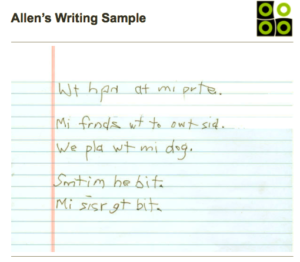 Allen's Writing Sample
Wt hpd at mi prte.
Mi frnds wt to owt sid.
We pla wt mi dog.
Smtim he bit.
Mi sisr gt bit.